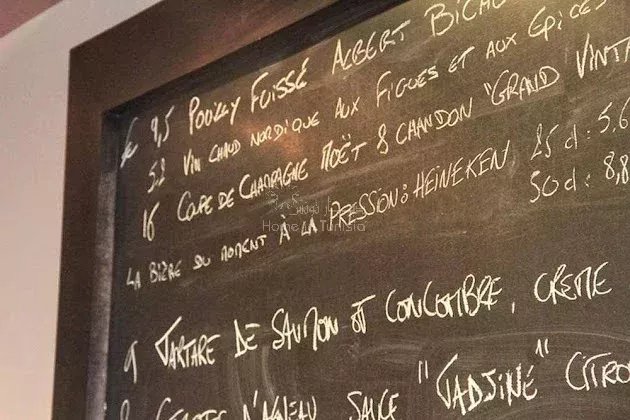 € 9,5 POUILLY FUISSÉ ALBERT BICHO
5,2 VIN CHAUD NORDIQUE AUX FIGUES ET AUX ÉPICES
16 COUPE DE CHAMPAGNE MOËT & CHANDON "GRAND VINTA
LA BIÈRE DU MOMENT À LA PRESSION: HEINEKEN, 25 d: 5,6
50 d: 8,8
Home in Tunisia
9 TARTARE DE SAUMON ET CONCOMBRE, CREME
D'AGNEAU, SAUCE "TADJINE" CITRO